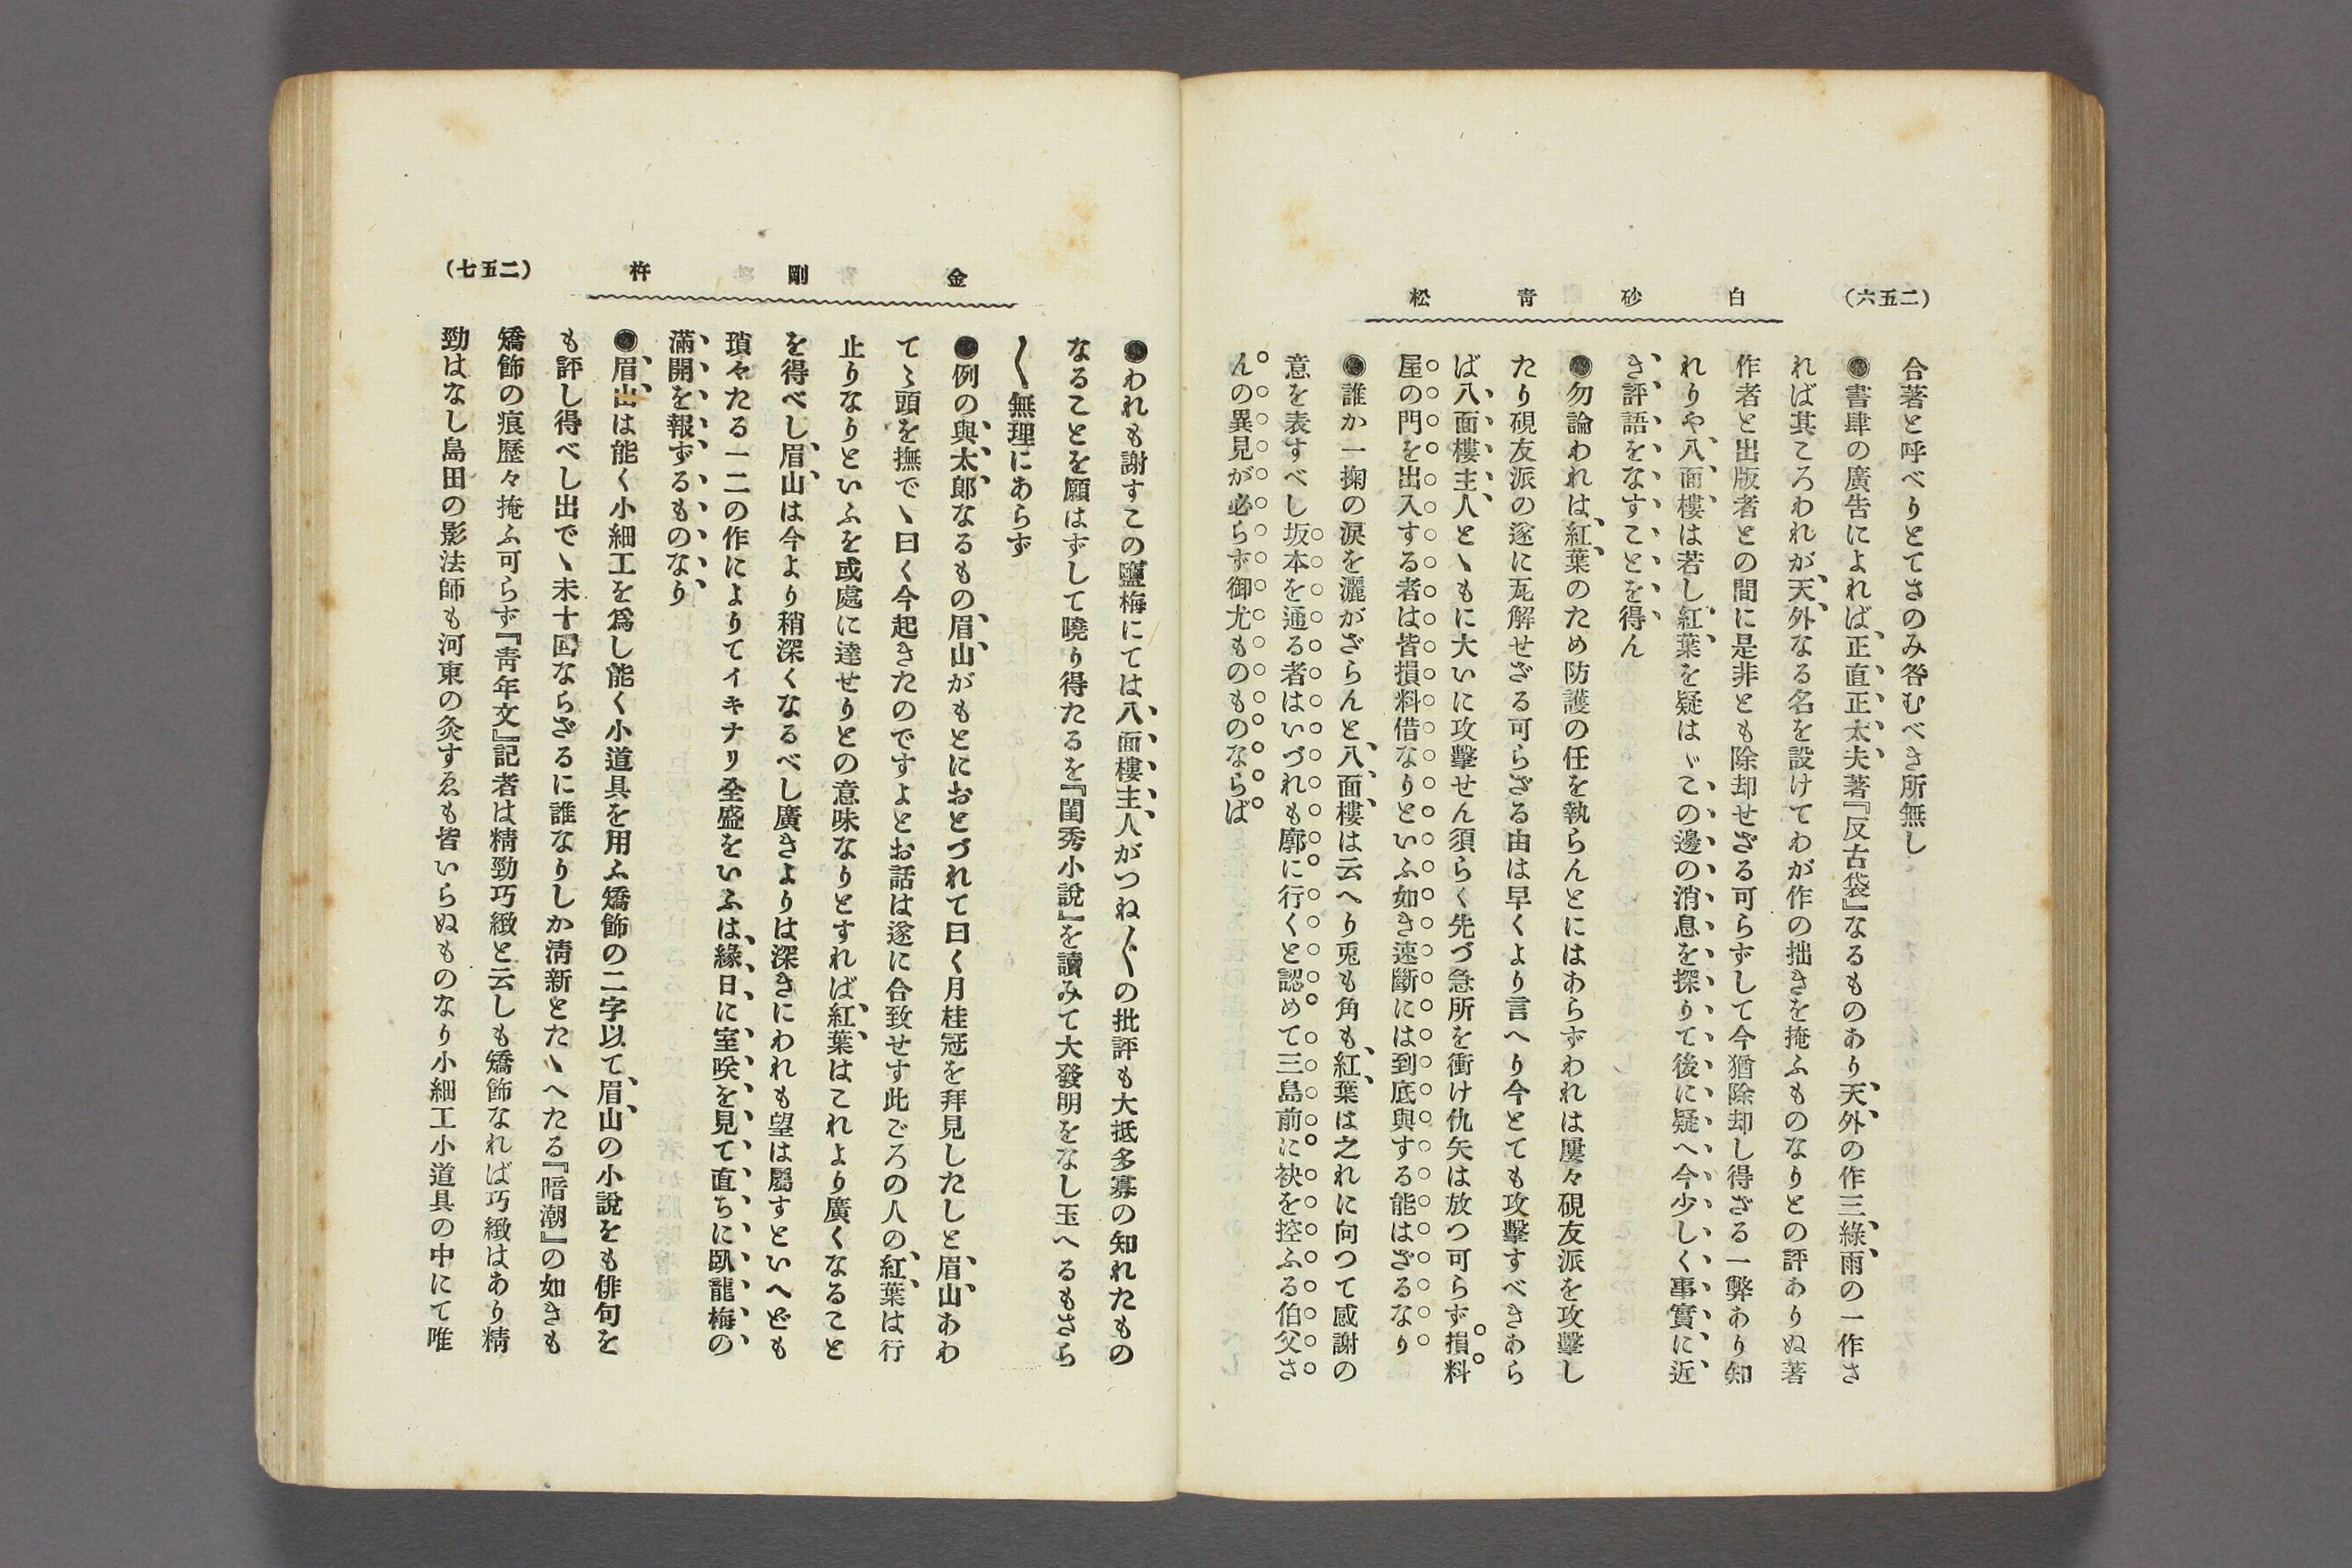 (二五六)
白砂青松
合著と呼べりとてさのみ咎むべき所無し
●書肆の廣告によれば正直正太夫著『反古袋』なるものあり天外の作三綠雨の一作さ
れば其ころわれが天外なる名を設けてわが作の拙きを掩ふものなりとの評ありぬ著
作者と出版者との間に是非とも除却せざる可らずして今猶除却し得ざる一弊あり知
れりや八面樓は若し紅葉を疑はゞこの邊の消息を探りて後に疑へ今少しく事實に近
き評語をなすことを得ん
●勿論われは紅葉のため防護の任を執らんとにはあらずわれは屢々硯友派を攻擊し
たり硯友派の遂に瓦解せざる可らざる由は早くより言へり今とても攻擊すべきあら
ば八面樓主人と丶もに大いに攻擊せん須らく先づ急所を衝け仇矢は放つ可らず損料
屋の門を出入する者は皆損料借なりといふ如き速斷には到底與する能はざるなり
●誰か一掬の淚を灑がざらんと八面樓は云へり兎も角も紅葉は之れに向つて感謝の
意を表すべし坂本を通る者はいづれも廓に行くと認めて三島前に袂を控ふる伯父さ
んの異見が必らず御尤ものものならば
金剛杵
(二五七)
●われも謝すこの鹽梅にては八面樓主人がつね〲の批評も大抵多寡の知れたもの
なることを願はずして曉り得たるを『閨秀小說』を讀みて大發明をなし玉へるもさら
〱無理にあらず
●例の與太郎なるもの眉山がもとにおとづれて曰く月桂冠を拜見したしと眉山あわ
てゝ頭を撫で丶曰く今起きたのですよとお話は遂に合致せす此ごろの人の紅葉は行
止りなりといふを或處に達せりとの意味なりとすれば紅葉はこれより廣くなること
を得べし眉山は今より稍深くなるべし廣きよりは深きにわれも望は屬すといへども
瑣々たる一二の作によりてイキナリ全盛をいふは緣日に室咲を見て直ちに臥龍梅の
滿開を報ずるものなり
●眉山は能く小細工を爲し能く小道具を用ふ矯飾の二字以て眉山の小說をも俳句を
も評し得べし出で丶未十囘ならざるに誰なりしか淸新とた丶へたる『暗潮』の如きも
矯飾の痕歷々掩ふ可らず『靑年文』記者は精勁巧緻と云しも矯飾なれば巧緻はあり精
勁はなし島田の影法師も河東の灸すゑも皆いらぬものなり小細工小道具の中にて唯